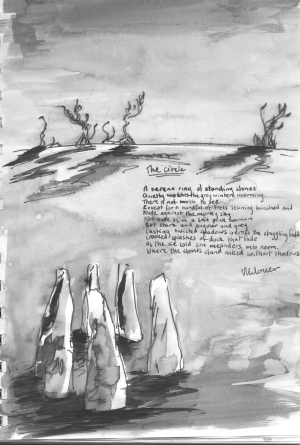 The Circle
A serene ring of standing stones
Quietly watches the grey winters morning
There is not much to see
Except for a handful of trees leaning twisted and
Nude against the murky sky
Not nude as in a soft pale woman
But stark and angular and grey
Casting twisted shadows across the struggling light
Crooked splashes of dusk that fade
As the ice cold sun meanders into noon
Where the stones stand naked without shadows